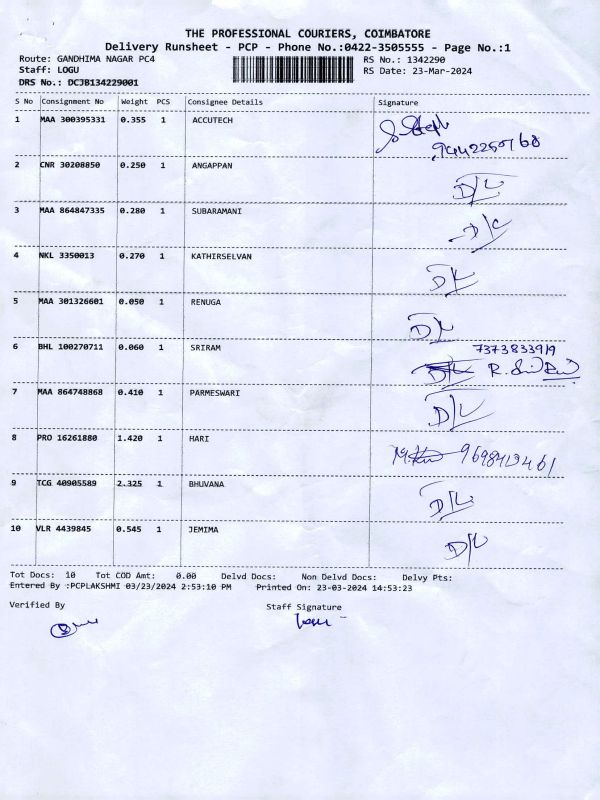 THE PROFESSIONAL COURIERS, COIMBATORE
Delivery Runsheet - PCP - Phone No.:0422-3505555 - Page No.:1
Route: GANDHIMA NAGAR PC4 RS No.: 1342290
Staff: LOGU RS Date: 23-Mar-2024
DRS No.: DCJB134229001
S No Consignment No Weight PCS Consignee Details Signature
1 MAA 300395331 0.355 1 ACCUTECH
2 CNR 30208850 0.250 1 ANGAPPAN D/L
3 MAA 864847335 0.280 1 SUBARAMANI D/L
4 NKL 3350013 0.270 1 KATHIRSELVAN D/L
5 MAA 301326601 0.050 1 RENUGA D/L
7373833919
6 BHL 100270711 0.060 1 SRIRAM
7 MAA 864748868 0.410 1 PARMESWARI D/L
8 PRO 16261880 1.420 1 HARI
9 TCG 40905589 2.325 1 BHUVANA D/L
10 VLR 4439845 0.545 1 JEMIMA D/L
Tot Docs: 10 Tot COD Amt: 0.00 Delvd Docs: Non Delvd Docs: Delvy Pts:
Entered By :PCPLAKSHMI 03/23/2024 2:53:10 PM Printed On: 23-03-2024 14:53:23
Verified By Staff Signature